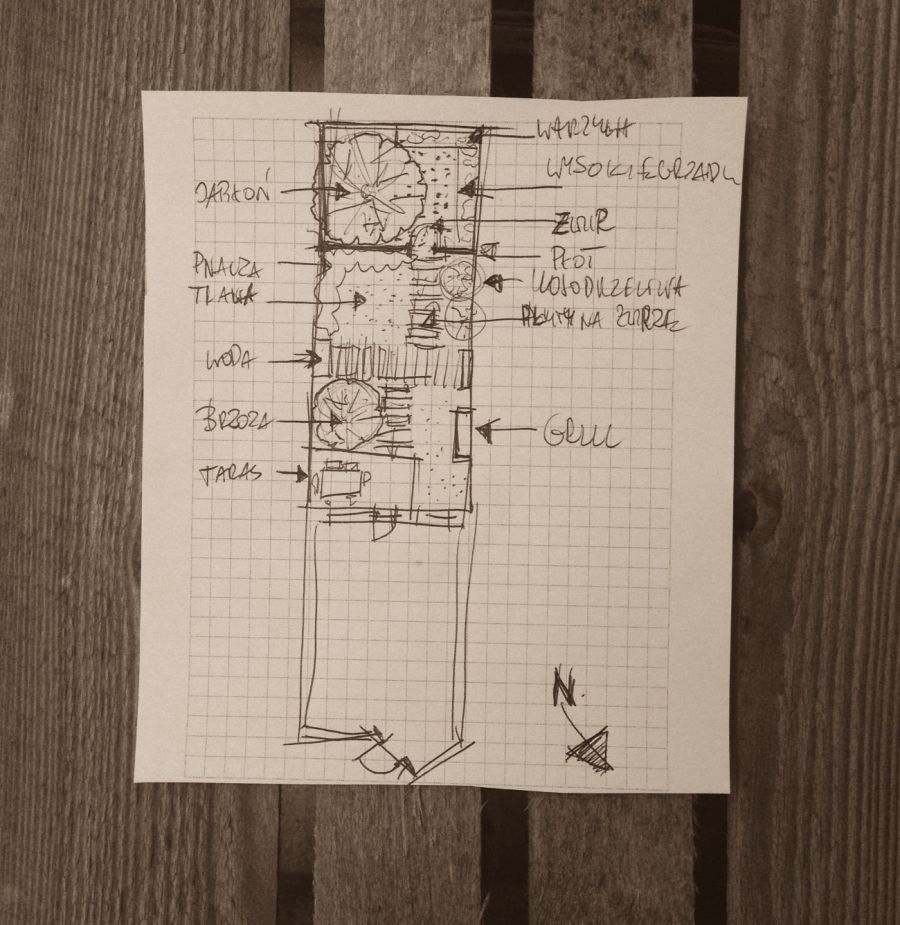 WARZYWA
WYSOKIE GRZĄDY
JABŁOŃ
ŻWIR
PŁOT
PNĄCZA
TRAWA
PŁYTY NA ŻWIRZE
WODA
BRZOZA
GRILL
TARAS
N.